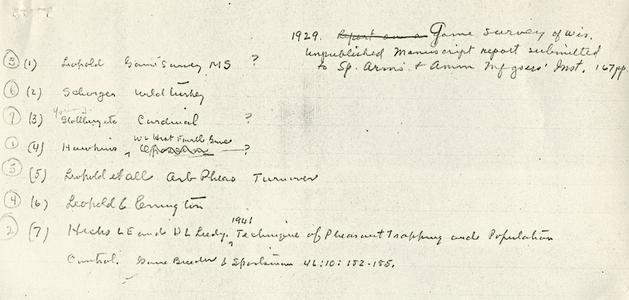 1929. Report on a Game Survey of Wis.
Unpublished Manuscript report submitted
to Sp. Arms & Amm Mfgsers' Inst. 167pp.
⑤ (1) Leopold Game Survey MS ?
⑥ (2) Schorger Wild turkey
⑦ (3) Stollberg etc Cardinal ?
① (4) Hawkins Wl Hist Faville Grove ?
③ (5) Leopold et all Arb Pheas Turnover
④ (6) Leopold & Errington
② (7) Hicks LE and DL Leedy, 1941 Technique of Pheasant Trapping and Population
Control. Game Breeder & Sportsman 46:10:152-155.